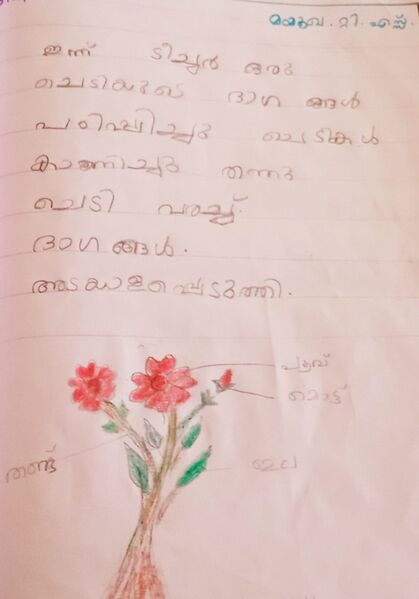 മയൂഖ. ടി. എസ്സ്.
ഇന്ന് ടീച്ചർ ഒരു
ചെടിയുടെ ഭാഗ ങ്ങൾ
പഠിപ്പിച്ചു ചെടികൾ
കാണിച്ചു തന്നു
ചെടി വരച്ച്.
ഭാഗ ങ്ങൾ.
അടയാളപ്പെടുത്തി.
പൂവ്
മൊട്ട്
തണ്ട് ഇല